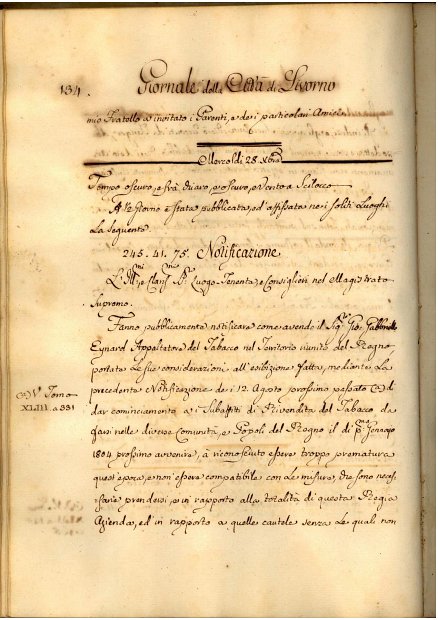 134.
Giornale della Città di Livorno
mio Fratello a invitato i Parenti, e dei particolari Amici.
Mercoldì 28. Xbre
Tempo oscuro, e frà chiaro, e oscuro, e Vento a Scilocco
A ½ giorno è stata pubblicata, ed affissata nei soliti Luoghi
La Seguente
245. 41. 75. Notificazione
Luogo-Tenente, e Consiglieri nel Magistrato
Supremo.
Fanno pubblicamente notificare come avendo il Sigre Gio: Gabbriello
Eynard Appaltatore del Tabacco nel Territorio riunito del Regno
portate Le sue considerazioni all'esibizione fatta, mediante La
precedente Notificazione dei 12. Agosto prossimo passato (a) di
(a) V. Tomo
XLIII. a 331
dar cominciamento a i Subaffitti di Rivendita del Tabacco da
farsi nelle diverse Comunità, e Popoli del Regno il dì pmo Gennajo
1804 prossimo avvenire, à riconosciuto essere troppo prematura
quest'epoca, e non essere compatibile con Le misure, che sono neces=
=sarie prendersi, e in rapporto alla totalità di questa Regia
Azienda, ed in rapporto a quelle cautele senza Le quali non